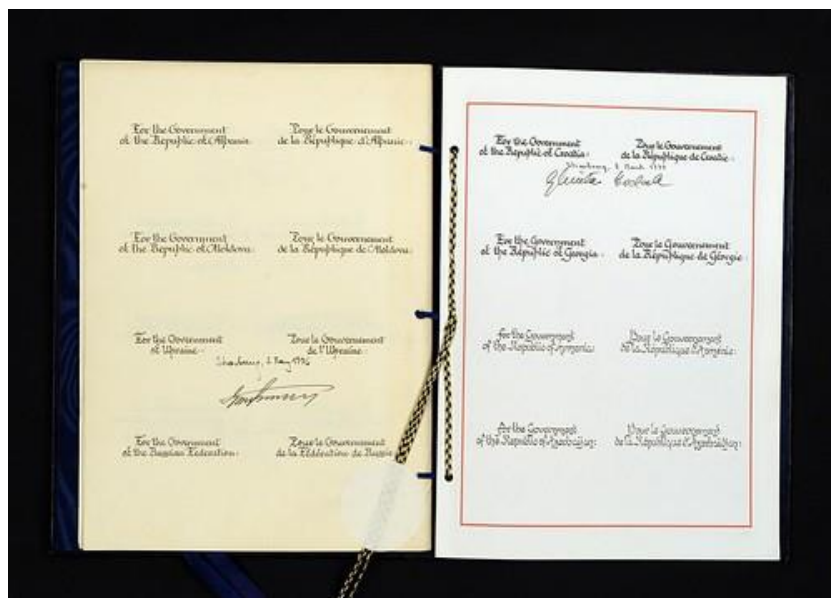 For the Government
of the Republic of Albania:
Pour le Gouvernement
de la République d'Albanie:
For the Government
of the Republic of Moldova:
Pour le Gouvernement
de la République de Moldova:
For the Government
of Ukraine:
Pour le Gouvernement
de l'Ukraine:
Strasbourg, 2 May 1996
For the Government
of the Russian Federation:
Pour le Gouvernement
de la Fédération de Russie:
For the Government
of the Republic of Croatia:
Pour le Gouvernement
de la République de Croatie:
Strasbourg,
For the Government
of the Republic of Georgia:
Pour le Gouvernement
de la République de Géorgie:
For the Government
of the Republic of Armenia:
Pour le Gouvernement
de la République d'Arménie:
For the Government
of the Republic of Azerbaijan:
Pour le Gouvernement
de la République d'Azerbaïdjan: